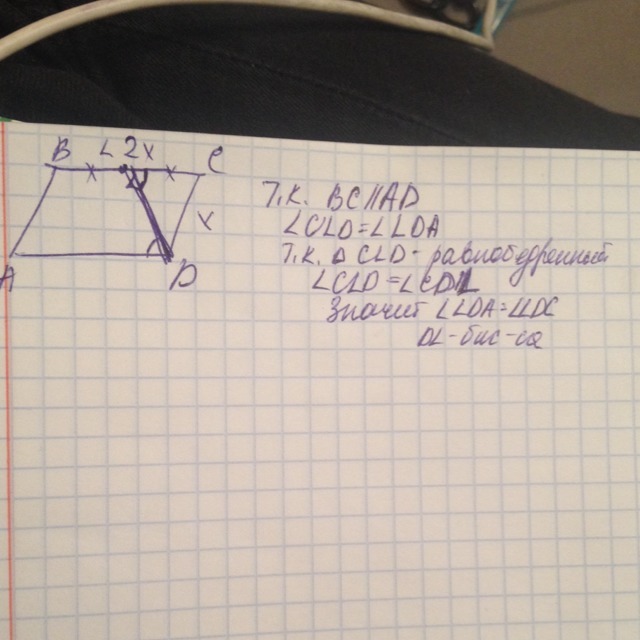 B L 2x C
x x
x
A D
Т.К. BC||AD
∠CLD=∠LDA
Т.К. △CLD-равнобедренный
∠CLD=∠CDL
Значит ∠LDA=∠LDC
DL-бис-са